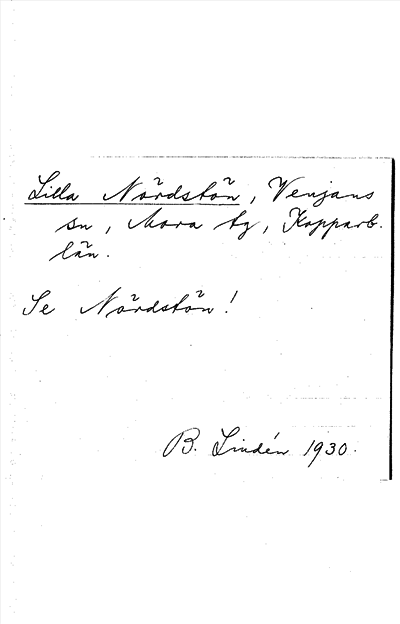 Lilla Nördstön, Venjans
sn, Mora tg, Kopparb.
län.
Se Nördstön!
B. Lindén 1930.